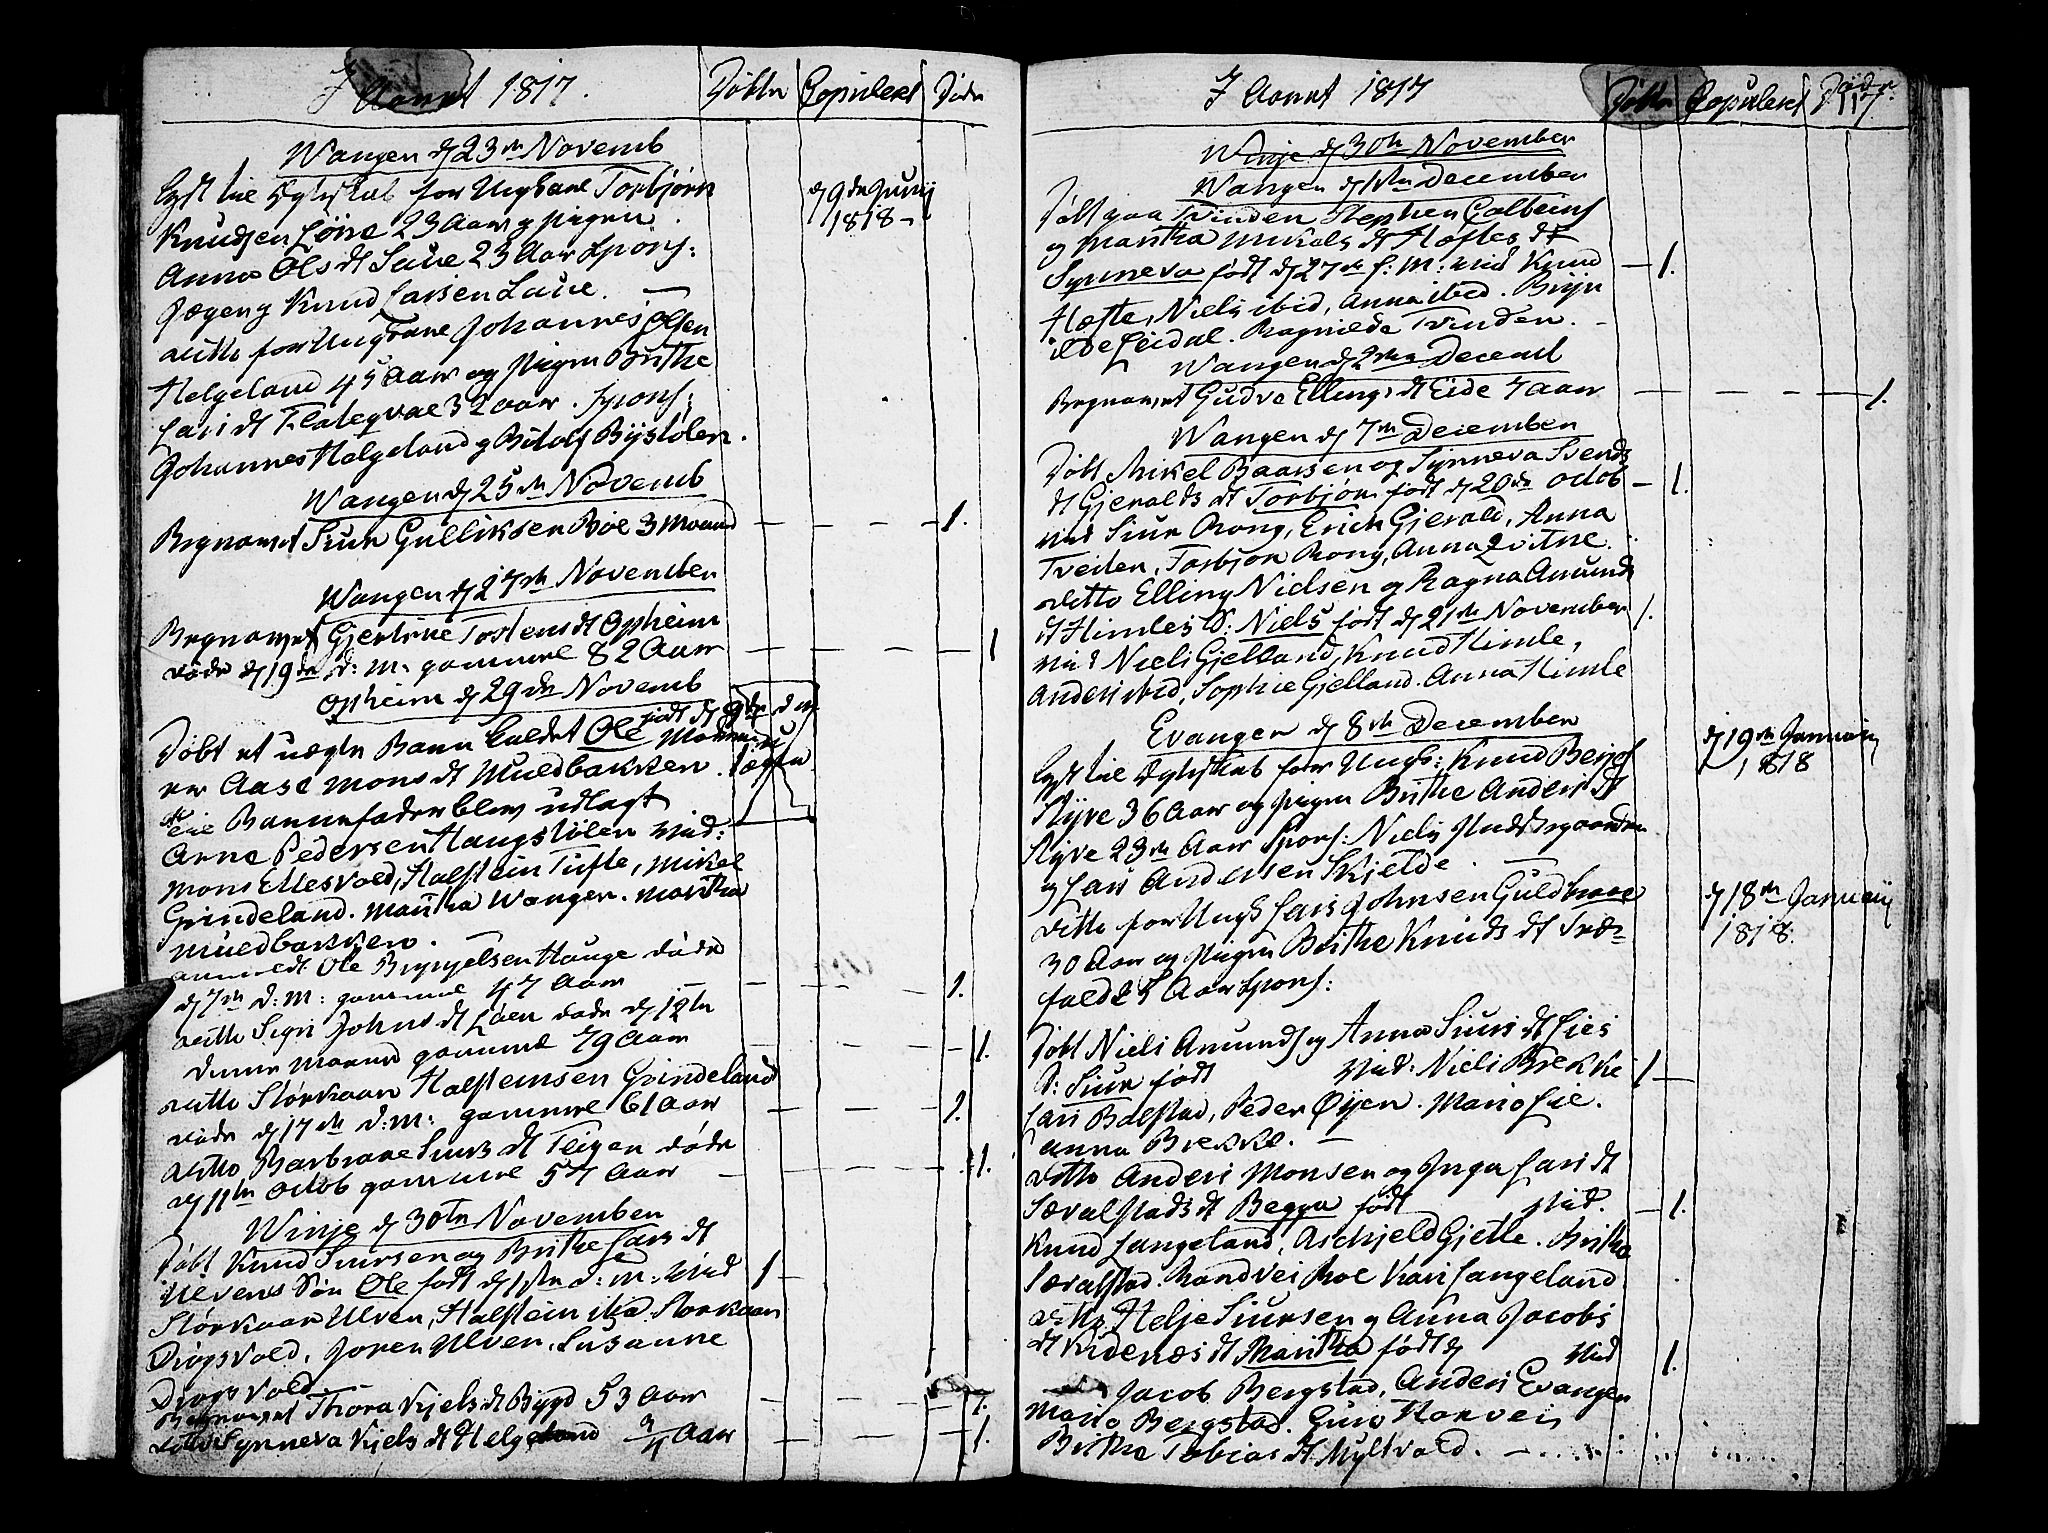 I Aaret 1817.
Døbte Copuleret Døde
Wangen d 23de Novemb
Lyst til Ægteskab for Ungkarl Torbjørn
Knudsen Løne 23 Aar og Pigen
d 9de Junij
1818
Anna Ols dt Saue 23 Aar Spons:
og Knud Larsen Saue.
ditto for Ungkarl Johannes Olsen
Helgeland 45 Aar og Pigen Brithe
Lars dt Flateqval 32 aar. Spons:
Johannes Helgeland og Botolf Bystølen.
Wangen d 25de Novemb
Begravet Siur Gulliksen Boe 3 Maaned
1.
Wangen d 27de November
Begravet Gjertrue Tostens dt Opheim
døde d 19de d: M: gammel 82 Aar
1
Opheim d 29de Novemb
Døbt et uægte Barn kaldet Ole født d 9de d M
er Aase Mons dt Muldbakken.
uægte
til Barnefader blev udlagt
Arne Pedersen Haugstølen Vid:
Mons Ellesvold, Halstein Tufte, Mikel
Grindeland. Maritha Wangen. Maritha
Muldbakken.
anmeldt Ole Brynjelsen Hauge døde
d 7de d: M: gammel 47 Aar
1.
ditto Sigri Johns dt Løen døde d 12te
denne Maaned gammel 79 Aar
1.
ditto Størkaar Halsteinsen Grindeland
døde d 17de d: M: gammel 61 Aar
1.
ditto Barbraae Siurs dt Fleigen døde
d 11te Octob gammel 57 Aar
1.
Winje d 30te November
Døbt Knud Siursen og Brithe Lars dt
Ulvens Søn Ole født d 1ste d: M: Vid
1
Størkaar Ulven, Halstein ibid. Størkaar
Drøgsvold, Joren Ulven. Susanne
Drøgsvold
Begravet Thora Kjels dt Bygd 53 Aar
1.
ditto Synneva Kjels dt Helgeland 3/4 Aar
1.
I Aaret 1817
Døbte Copuleret Døde
117.
Winje d 30te November
Wangen d 1ste December
Døbt paa Tvinden Stephen Colbeins
og Maritha Mikels dt Hæftes dt
Synneva født d 27de f: M: Vid Knud
1.
Hæfte, Niels ibid, Anna ibid. Bryn
ilde Leidal. Ragnilde Tvinden.
Wangen d 2den Decemb
Begravet Gudve Ellings dt Eide 7 aar
1.
Wangen d 7de December
Døbt Mikel Baarsen og Synneva Svends
dt Gjeralds dt Torbjør født d 20de Octob
1.
Vid Siur Rong, Erich Gjerald, Anna
Tveiten, Torbjør Rong, Anna Qvitne.
ditto Elling Nielsen og Ragna Amunds
dt Himles S: Niels født d 21de November
1.
Vid Niels Gjelland, Knud Himle,
Anders ibid, Sophie Gjelland. Anna Himle
Evanger d 8de December
Lyst til Ægteskab for Ungk: Knud Beriss
d 19de Januarij
1818
Styve 36 Aar og Pigen Brithe Anders dt
Styve 23de Aar Spons: Niels
og Lars Andersen Skjelde.
ditto for Ungk Lars Johnsen Guldbraae
d 18de Januarij
1818.
30 Aar og Pigen Brithe Knuds dt Fade
fald 25 Aar Spons:
Døbt Niels Amunds og Anna Siurs dt Lies
S: Siur født Vid: Niels Brekke
1
Lars Bolstad, Peder Øyen. Mario Lie.
Anna Brekke.
ditto Anders Monsen og Inga Lars dt
Særalstads dt Begga født Vid.
1.
Knud Langeland, Aschjeld Gjelle. Britha
Særalstad. Randvei Roe Kari Langeland
ditto Helje Siursen og Anna Jacobs
dt Kidenæs dt Maritha født d Vid
1.
Jacob Bergstad, Anders Evanger
Mario Bergstad. Guro Horvei,
Britha Tobias dt Myltvold.